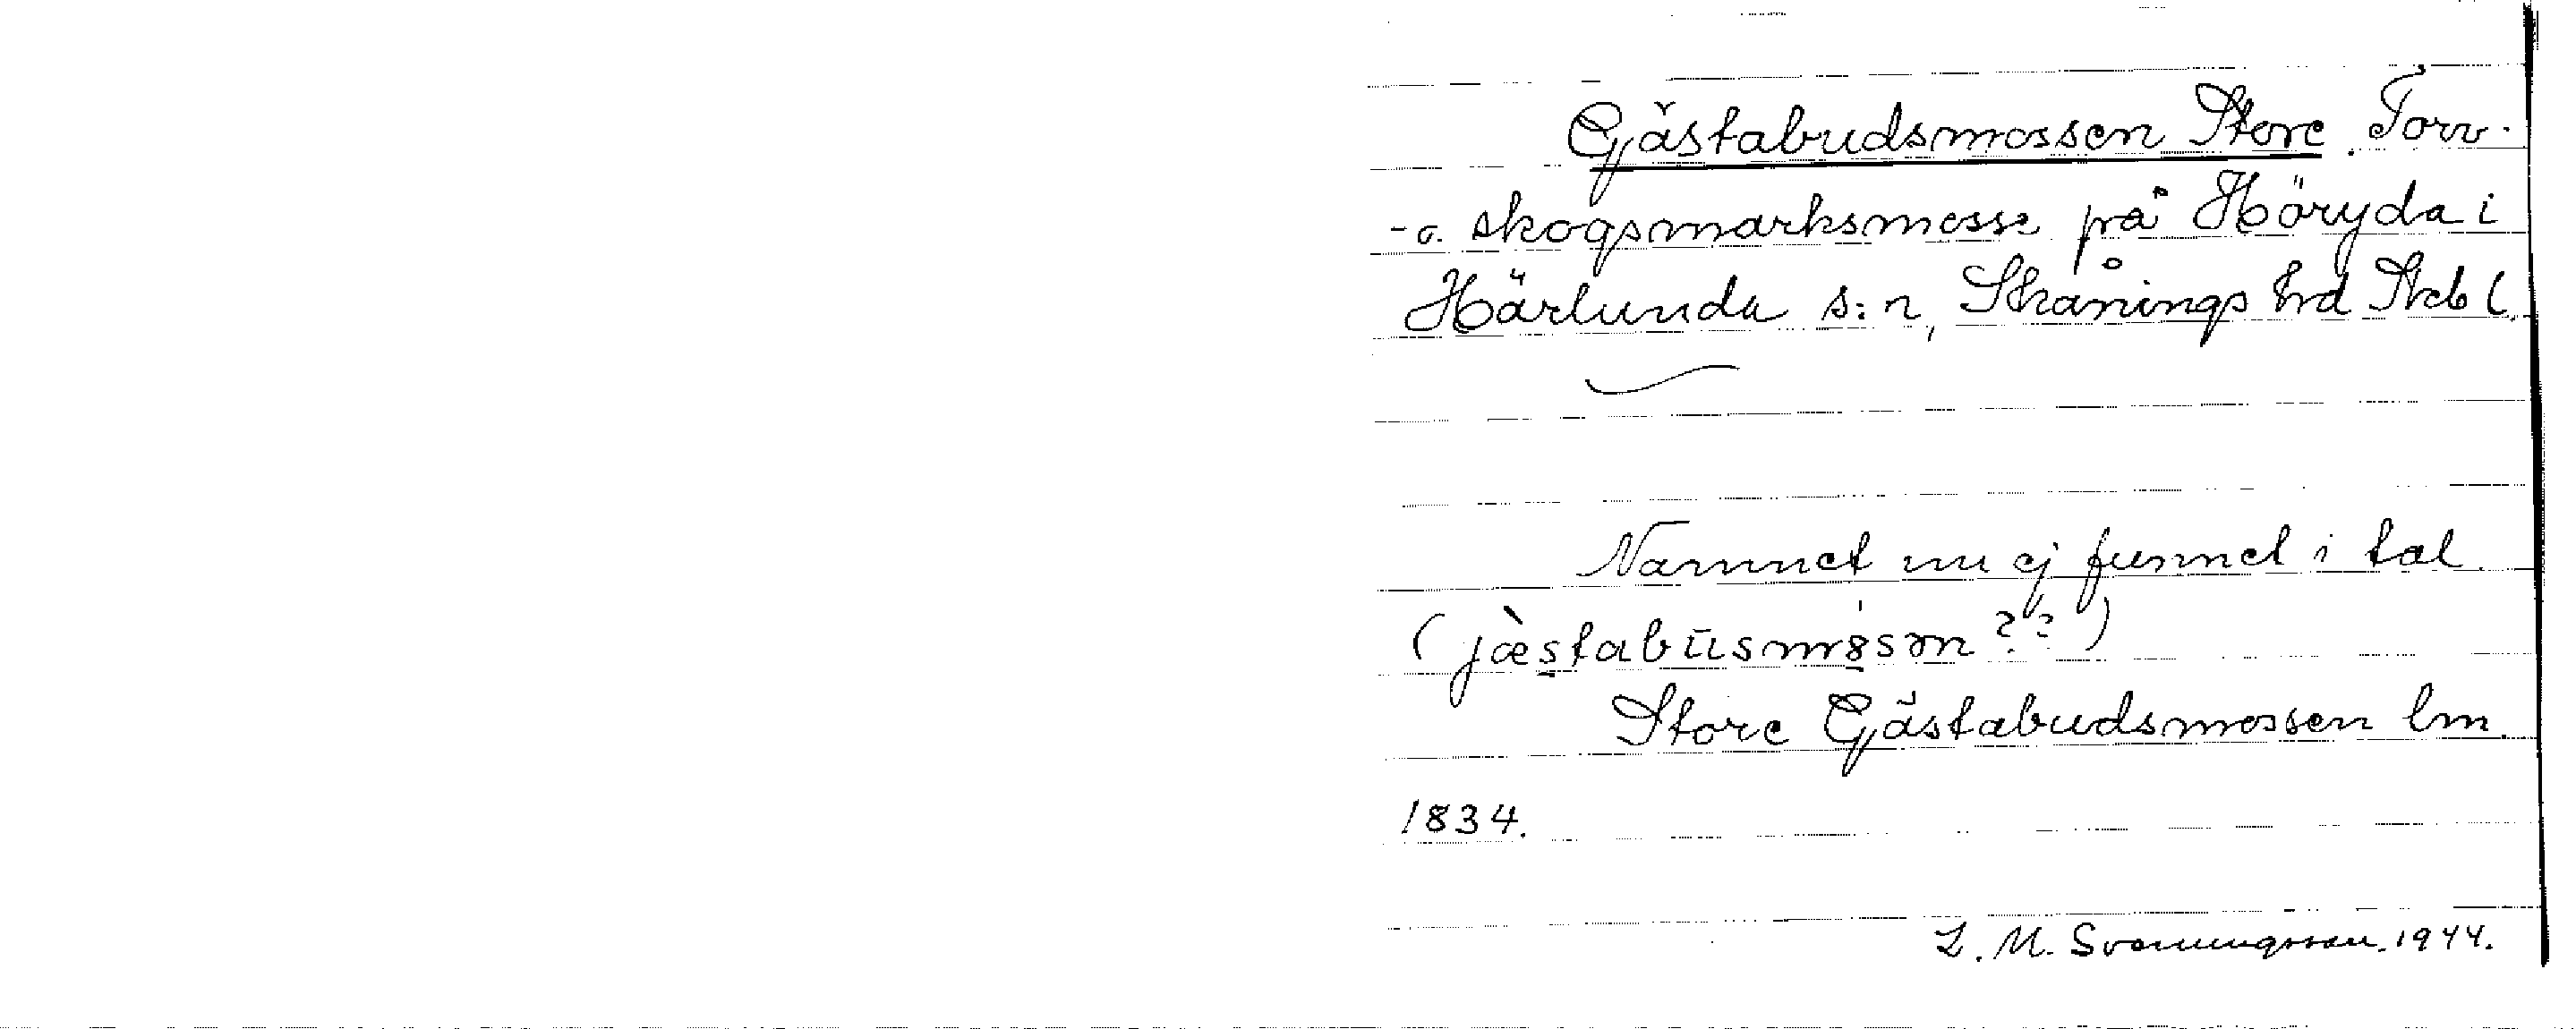 Gästabudsmossen Store. Torv-
-o. skogsmarksmosse på Höryda i
Härlunda s:n, Skånings hd Skbl.
Namnet nu ej funnet i tal.
(jæ̀stabūsmo̩sən??)
Store Gästabudsmossen lm.
1834.
L. M. Svenungsson. 1944.